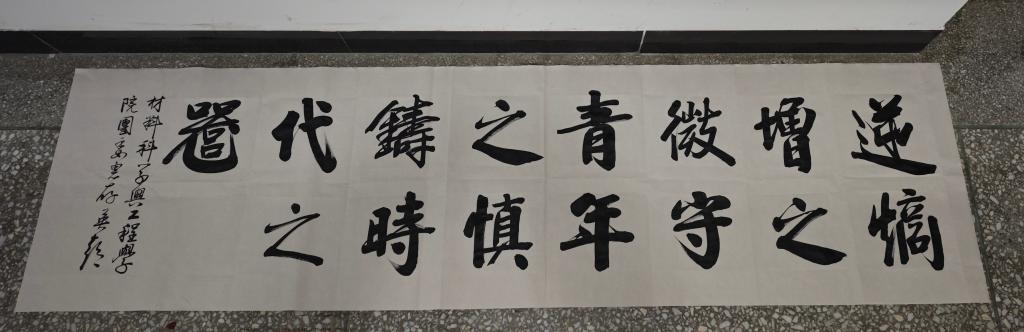 逆熵
增之
微守
青年
之慎
鑄時
代之
器
材料科学與工程學
院團委惠存